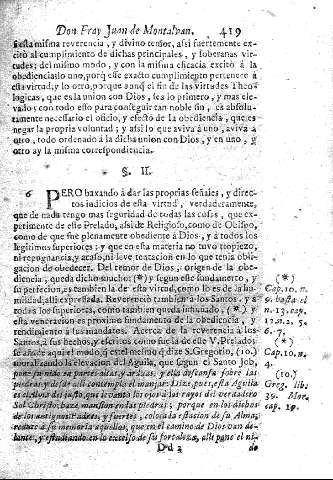 Don Fray Juan de Montalvan. 419
à esta misma reverencia, y divino temor, assi fuertemente ex-
citò al cumplimiento de dichas principales, y soberanas vir-
tudes; del mismo modo, y con la misma eficacia excitò à la
obediencia lo uno, porq̃ esse exacto cumplimiento pertenece à
esta virtud, y lo otro, porque aunq̃ el fin de las virtudes Theo-
logicas, que es la union con Dios, sea lo primero, y mas ele-
vado; con todo esso para conseguir tan noble fin, es absolu-
tamente necessario el oficio, y efecto de la obediencia, que es
negar la propria voluntad; y assi lo que aviva à uno, aviva à
otro, todo ordenado à la dicha union con Dios, y en uno, y
otro ay la misma correspondencia.
§. II.
6 PERO baxando à dar las proprias señales, y direc-
tos indicios de esta virtud, verdaderamente,
que de nada tengo mas seguridad de todas las cosas, que ex-
perimente de este Prelado, assi de Religioso, como de Obispo,
como de que fue plenamente obediente à Dios, y à todos los
legitimos superiores; y que en esta materia no tuvo tropiezo,
ni repugnancia, y acaso, ni leve tentacion en lo que tenia obli-
gacion de obedecer. Del temor de Dios, origen de la obe-
diencia, queda dicho mucho; (*) y segun esse fundamento, y
su perfeccion, es tambien la de esta virtud, como lo es de la hu-
mildad, alli expressada. Reverenciò tambien à los Santos, y à
todos los superiores, como tambien queda insinuado; (*) y
esta veneracion es proximo fundamento de la obediencia, y
rendimiento à los mandatos. Acerca de la reverencia à los
Santos, à sus hechos, y escritos como fuesse de este V. Prelado;
se añade aqui el modo, q̃ es el mesmo q̃ dize S. Gregorio, (10.)
moralizando la elevacion del Aguila, que segun el Santo Job,
pone su nido en partes altas, y arduas, y ella descansa sobre las
piedras, y desde alli contempla el manjar: Dize, pues, esta Aguila
es el Alma del justo, que levanta los ojos à los rayos del verdadero
Sol Christo; haze mansion en las piedras; porque en los dichos
de los antiguos Padres, y fuertes, coloca la estacion de su Alma,
reduce à su memoria aquellos, que en el camino de Dios van de-
lante, y estudiando en lo excelso de su fortaleza, alli pone el ni-
Ddd 2 do
(*)
Cap. 10. n.
9. hasta el
n. 13. cap.
12. n. 2. 5.
6. 7.
(*)
Cap. 10. n.
4.
(10.)
Greg. lib.
31. Mor.
cap. 19.